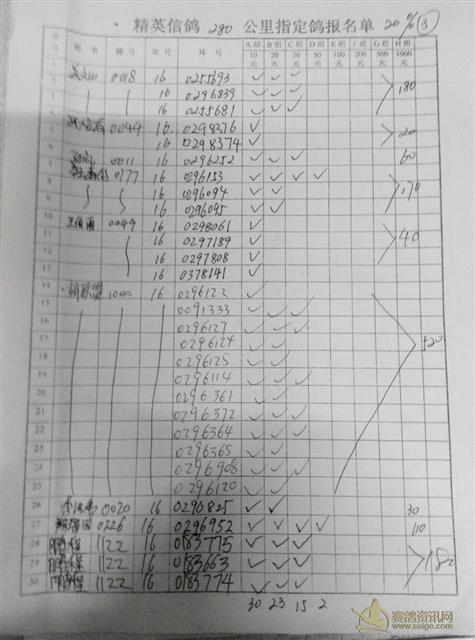 精英信鸽 280 公里指定鸽报名单 20 % ③
序号 姓名 棚号 年号 环号 A组10元 B组20元 C组30元 D组50元 E组100元 F组200元 G组500元 H组1000元
1 0018 16 0255693 ✓ ✓ ✓
2 16 0296839 ✓ ✓ ✓ 180
3 16 0255681 ✓ ✓ ✓
4 0099 16 0298376 ✓
5 16 0298374 ✓ 20
6 0011 16 0296252 ✓ ✓ ✓ 60
7 0177 16 0296153 ✓ ✓ ✓ ✓
8 16 0296094 ✓ ✓ 170
9 16 0296095 ✓ ✓
10 0049 16 0298061 ✓
11 16 0297189 ✓ 40
12 16 0297808 ✓
13 16 0378141 ✓
14 1000 16 0296122 ✓
15 0091333 ✓ ✓ ✓
16 0296127 ✓ ✓ ✓
17 0296124 ✓ ✓ 520
18 0296125 ✓ ✓
19 0296114 ✓ ✓ ✓
20 0296361 ✓ ✓
21 0296372 ✓ ✓ ✓
22 0296364 ✓ ✓ ✓
23 0296365 ✓ ✓
24 0296908 ✓ ✓ ✓
25 0296120 ✓ ✓
26 0020 16 0296825 ✓ ✓ 30
27 0226 16 0296952 ✓ ✓ ✓ ✓ 110
28 1122 16 0183775 ✓ ✓ ✓
29 1122 16 0183663 ✓ ✓ ✓ 180
30 1122 16 0183774 ✓ ✓ ✓
30 23 15 2
赛鸽资讯网
www.saige.com